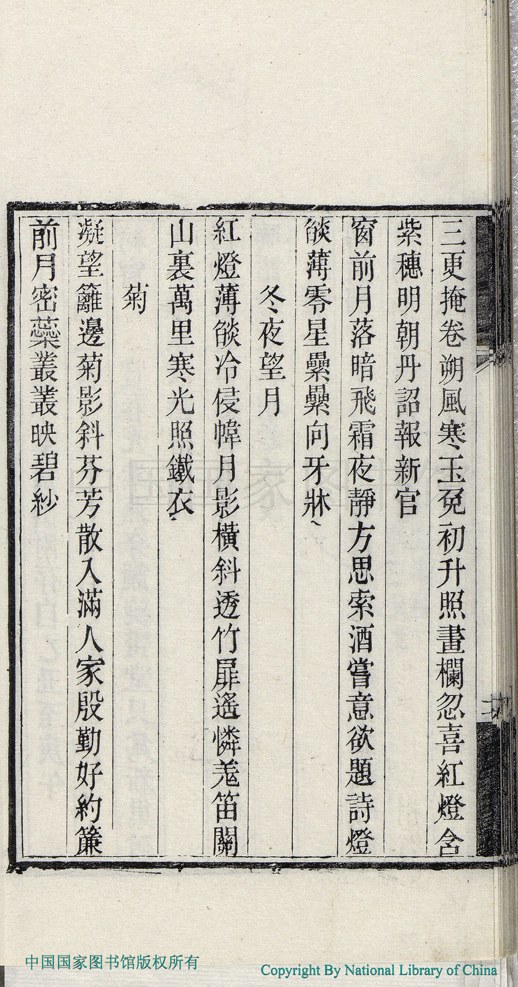 三更掩卷朔風寒玉兔初升照畫欄忽喜紅燈含
紫穗明朝丹詔報新官
窗前月落暗飛霜夜靜方思索酒嘗意欲題詩燈
燄薄零星纍纍向牙牀
冬夜望月
紅燈薄燄冷侵幃月影橫斜透竹扉遙憐羗笛關
山裏萬里寒光照鐵衣
菊
凝望籬邊菊影斜芬芳散入滿人家殷勤好約簾
前月密蘂叢叢映碧紗
中国国家图书馆版权所有
Copyright By National Library of China